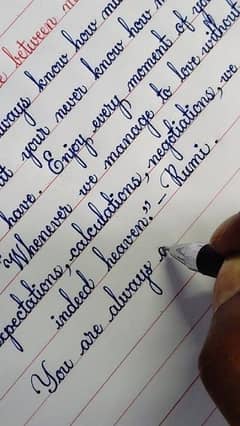 e between m
ways know how mu
t your never know how m
have. Enjoy every moment of yo
"Whenever we manage to love without
pectations, calculations, negotiations, we
indeed heaven." - Rumi.
You are always